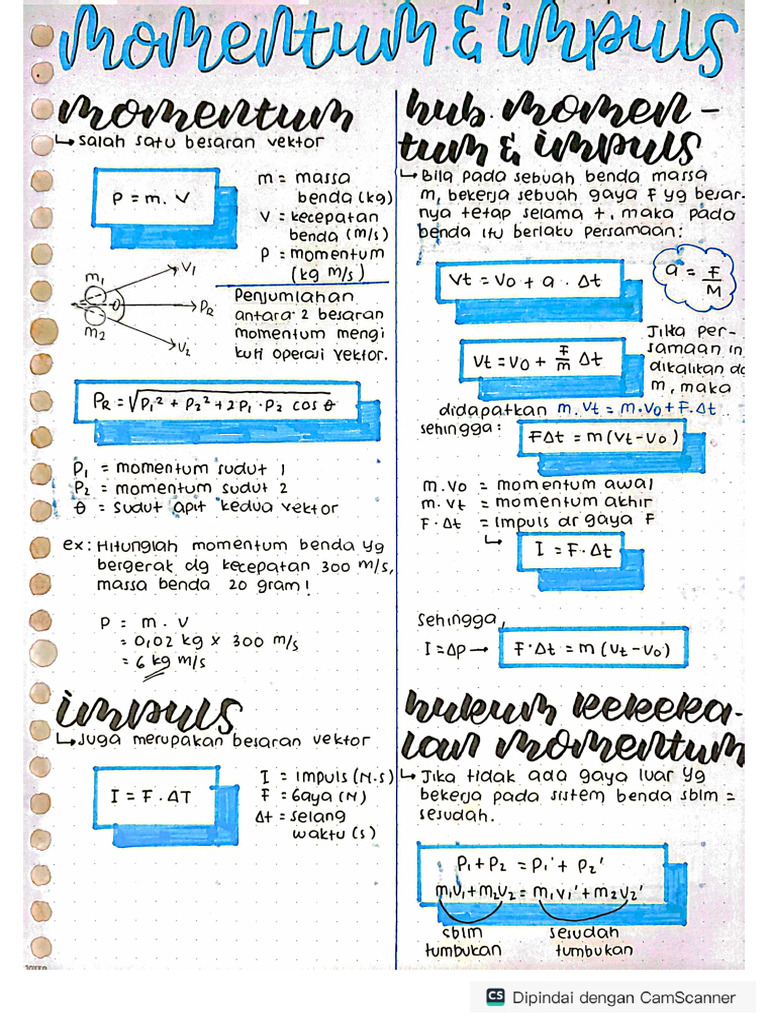 momentum & impuls
momentum
↳ salah satu besaran vektor
P = m. V
m = massa
benda (kg)
V = kecepatan
benda (m/s)
P = momentum
(kg m/s)
m₁
V₁
PR
m₂
V₂
Penjumlahan
antara 2 besaran
momentum mengi
kuti operasi vektor.
PR = √P₁² + P₂² + 2P₁ · P₂ cos θ
P₁ = momentum sudut 1
P₂ = momentum sudut 2
θ = sudut apit kedua vektor
ex: Hitunglah momentum benda yg
bergerak dg kecepatan 300 m/s,
massa benda 20 gram!
P = m . V
= 0,02 kg x 300 m/s
= 6 kg m/s
impuls
↳ Juga merupakan besaran vektor
I = F . ΔT
I = impuls (N.s)
F = Gaya (N)
Δt = selang
waktu (s)
hub. momen-
tum & impuls
↳ Bila pada sebuah benda massa
m, bekerja sebuah gaya F yg besar-
nya tetap selama t, maka pada
benda itu berlaku persamaan:
Vt = Vo + a . Δt
a = F/M
Vt = Vo + F/m Δt
Jika per-
samaan in
dikalikan
m, maka
didapatkan m.Vt = m.Vo + F.Δt
sehingga:
FΔt = m (Vt - Vo)
m.Vo = momentum awal
m.Vt = momentum akhir
F.Δt = impuls dr gaya F
↳ I = F. Δt
Sehingga,
I = ΔP → F.Δt = m (Vt - Vo)
hukum kekeka-
lan momentum
↳ Jika tidak ada gaya luar yg
bekerja pada sistem benda sblm =
sesudah.
P₁ + P₂ = P₁' + P₂'
m₁V₁ + m₂V₂ = m₁V₁' + m₂V₂'
sblm
tumbukan
sesudah
tumbukan
CS Dipindai dengan CamScanner